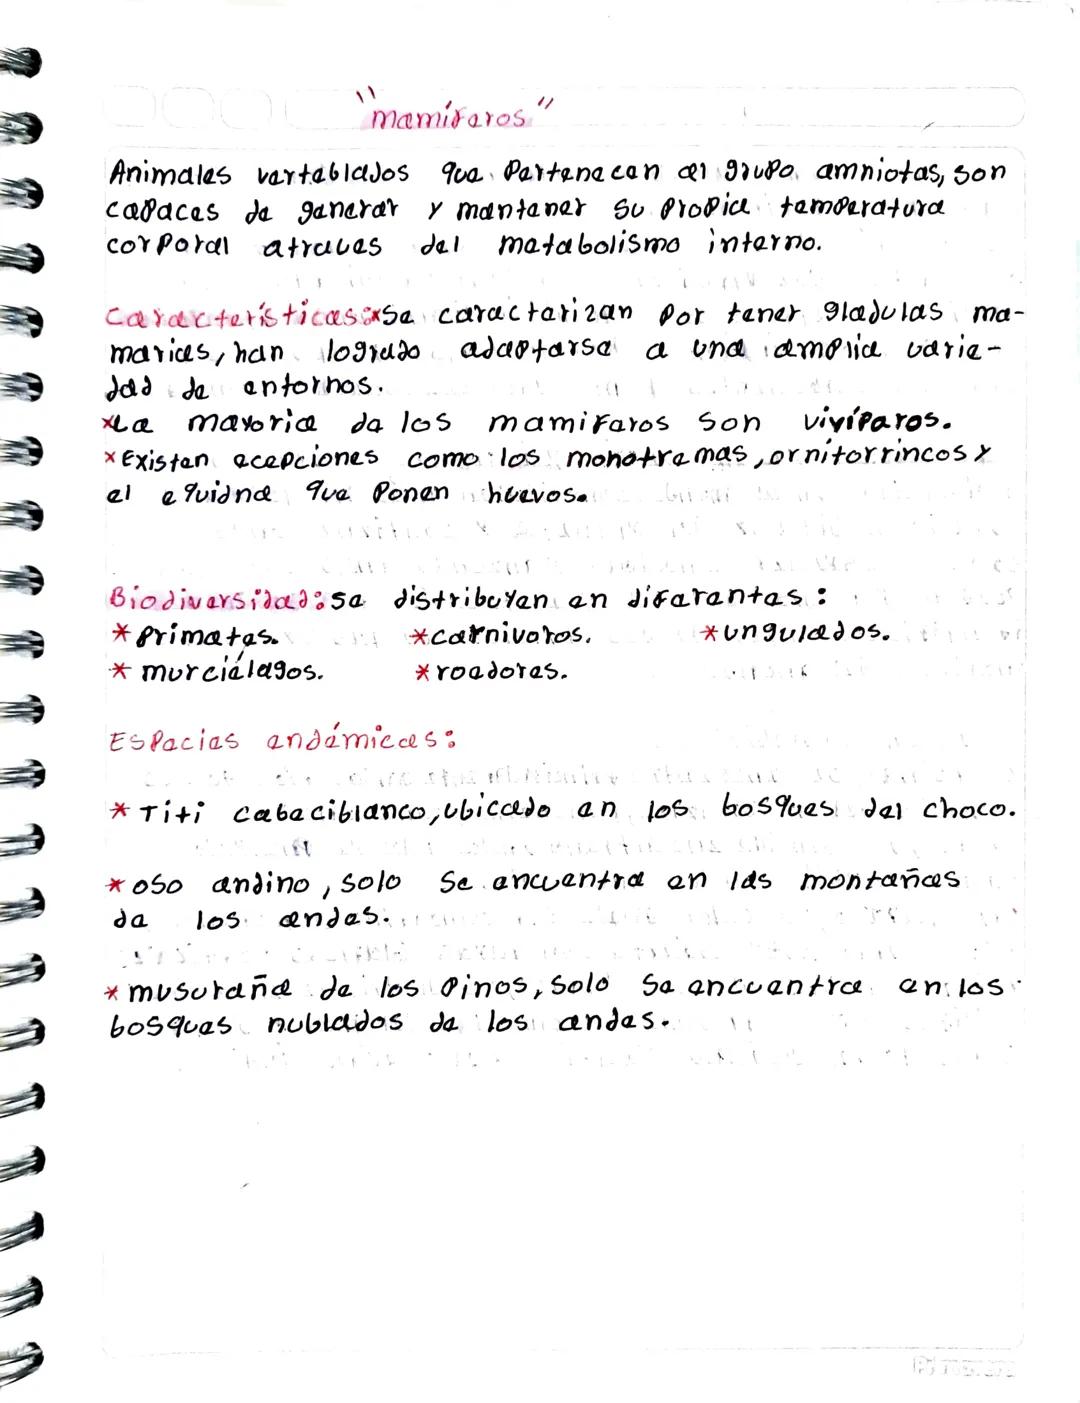 "mamíferos"
Animales vertebledos que Pertenecen al grupo amniotas, son
capaces de generar y mantener su propia temperatura
corporal atraves del metabolismo interno.
Características: *Se caracterizan por tener gladulas ma-
marias, han logrado adaptarse a una amplia varie-
dad de entornos.
*La mayoria de los mamiferos son vivíparos.
*Existen ecepciones como los monotremas, ornitorrincos y
el equidna que ponen huevos.
Biodiversidad: se distribuyen en diferentes:
*Primates. *carnivoros. *ungulados.
*murciélagos. *roedores.
Especies endémicas:
*Titi cabeciblanco, ubicado en los bosques del choco.
*oso andino, solo se encuentra en las montañas
de los andes.
*musuraña de los pinos, solo se encuentra en los
bosques nublados de los andes.